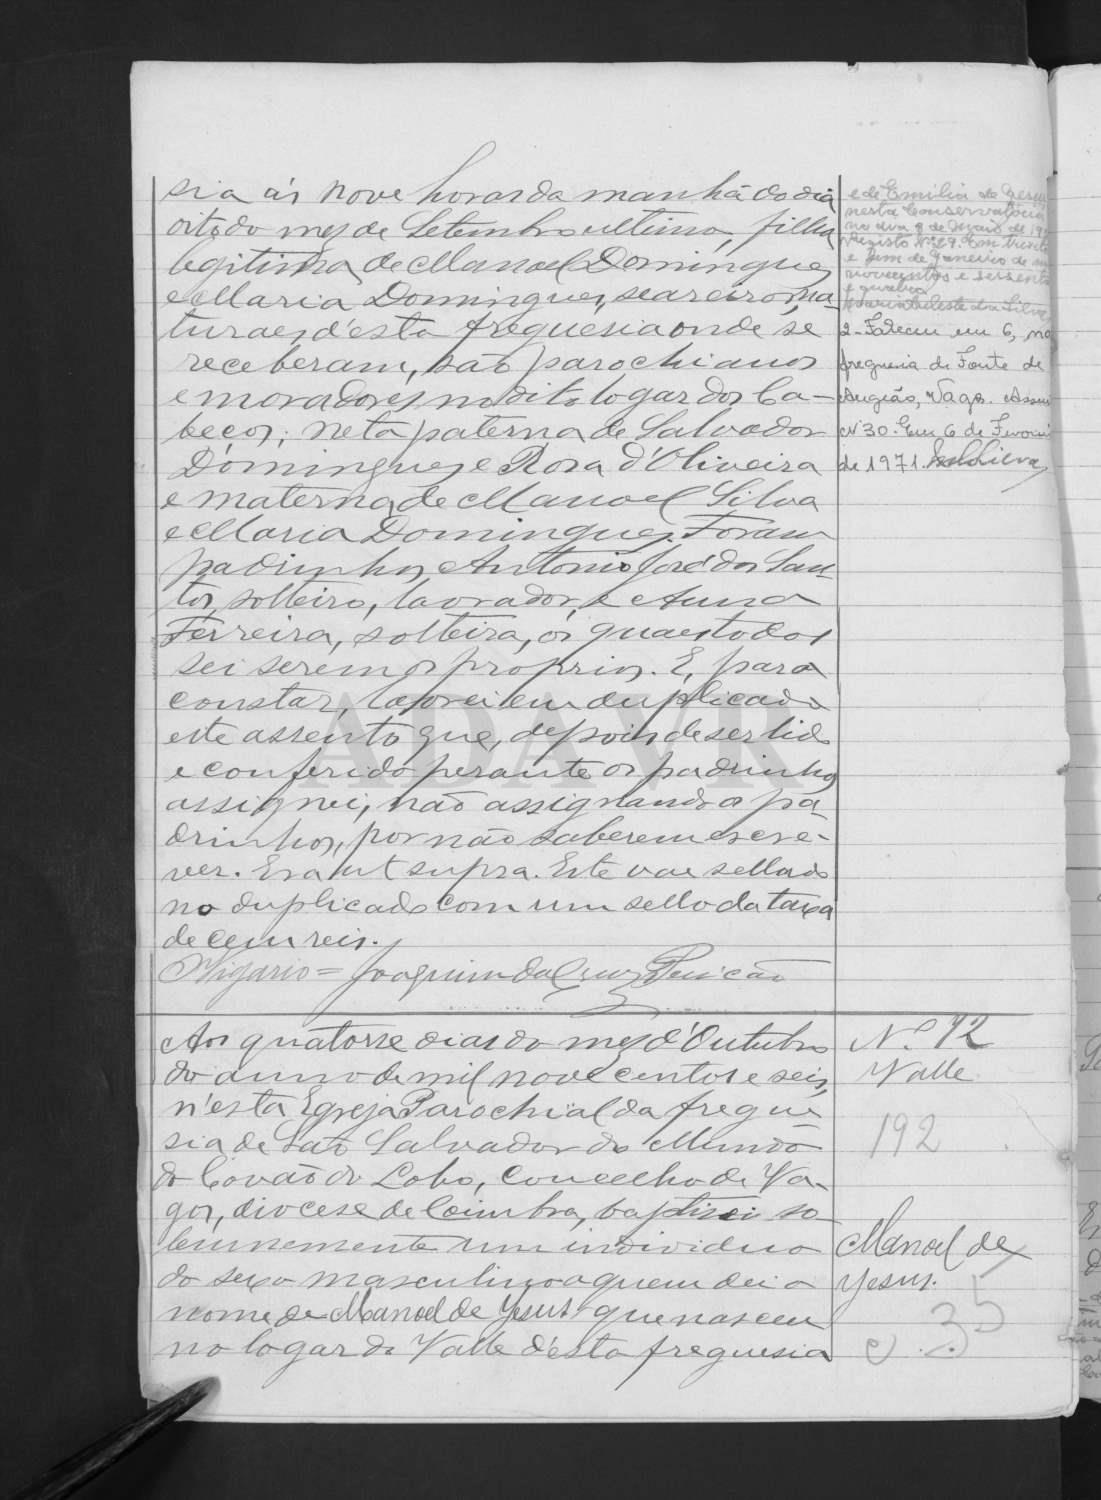 sia ás nove horas da manhã do dia
oito do mez de Setembro ultimo, filha
legitima de Manoel Domingues
e Maria Domingues, seareiros, na-
turaes d'esta freguesia onde se
receberam, são parochianos
e moradores no dito logar dos Ca-
beços; neta paterna de Salvador
Domingues e Rosa d'Oliveira
e materna de Manoel Silva
e Maria Domingues. Foram
padrinhos Antonio José dos San-
tos, solteiro, lavrador, e Anna
Ferreira, solteira, os quaes todos
sei serem os proprios. E, para
constar, lavrei em duplicado
este assento que, depois de ser lido
e conferido perante os padrinhos
assignei, não assignando os pa-
drinhos, por não saberem escre-
ver. Era ut supra. Este vae sellado
no duplicado com um sello da taxa
de cem reis.
O Vigario = Joaquim da Cruz
e de Emilia de Jesus
nesta Conservatória
no dia 9 de Maio de 19
Registo Nº 29. Em trinta
e um de Janeiro de mil
novecentos e sessenta
e quatro
2 - Faleceu em 6, na
freguesia de Fonte de
Angião, Vagos. Assento
Nº 30. Em 6 de
de 1971.
ADAVR
Aos quatorse dias do mez d'Outubro
do anno de mil nove centos e seis,
n'esta Egreja Parochial da fregue-
sia de São Salvador do Mundo
do Covão do Lobo, Concelho de Va-
gos, diocese de Coimbra, baptisei so-
lemnemente um individuo
do sexo masculino a quem dei o
nome de Manoel de Jesus que nasceu
no logar do Valle d'esta freguesia
Nº 92
Valle
192
Manoel de
Jesus.
35